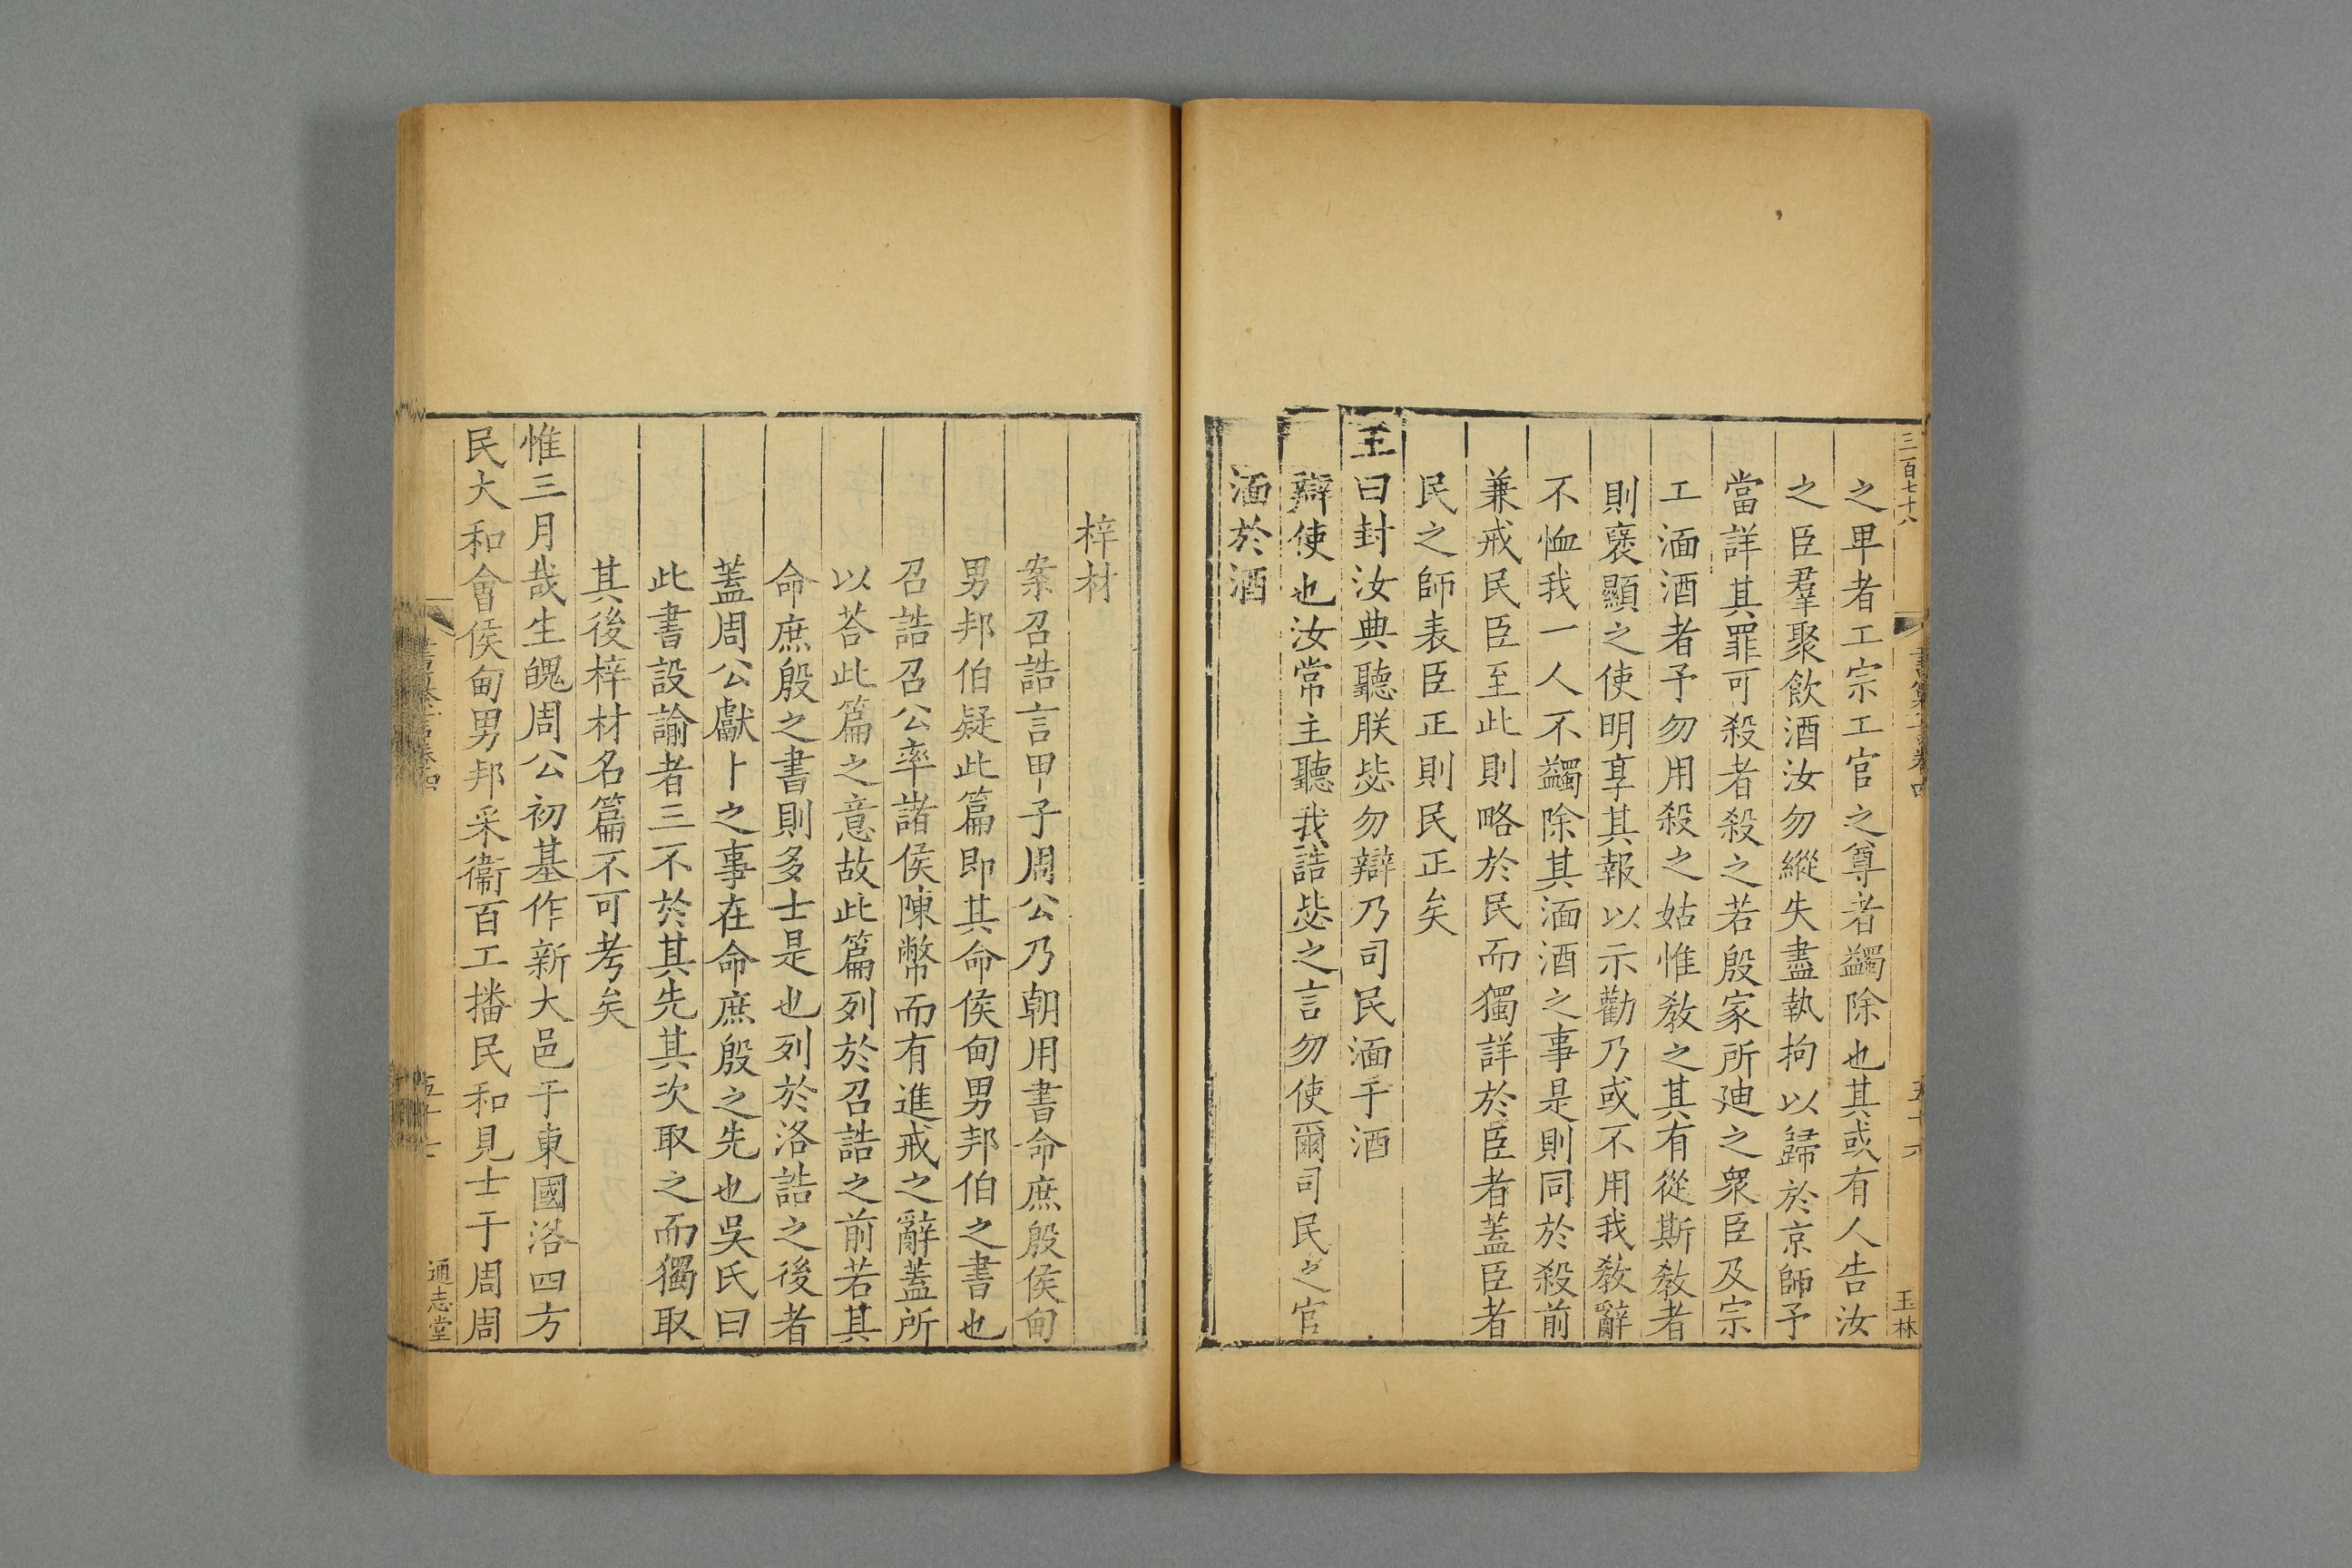 三百七十八
五十六
玉林
之卑者工宗工官之尊者蠲除也其或有人告汝
之臣羣聚飲酒汝勿縱失盡執拘以歸於京師予
當詳其罪可殺者殺之若殷家所廸之衆臣及宗
工湎酒者予勿用殺之姑惟敎之其有從斯敎者
則襃顯之使明享其報以示勸乃或不用我敎辭
不恤我一人不蠲除其湎酒之事是則同於殺前
兼戒民臣至此則略於民而獨詳於臣者蓋臣者
民之師表臣正則民正矣
王曰封汝典聽朕毖勿辯乃司民湎于酒
辯使也汝常主聽我誥毖之言勿使爾司民之官
湎於酒
梓材
案召誥言甲子周公乃朝用書命庶殷侯甸
男邦伯疑此篇即其命侯甸男邦伯之書也
召誥召公率諸侯陳幣而有進戒之辭蓋所
以荅此篇之意故此篇列於召誥之前若其
命庶殷之書則多士是也列於洛誥之後者
蓋周公獻卜之事在命庶殷之先也吳氏曰
此書設諭者三不於其先其次取之而獨取
其後梓材名篇不可考矣
惟三月哉生魄周公初基作新大邑于東國洛四方
民大和會侯甸男邦采衞百工播民和見士于周周
五十七
通志堂